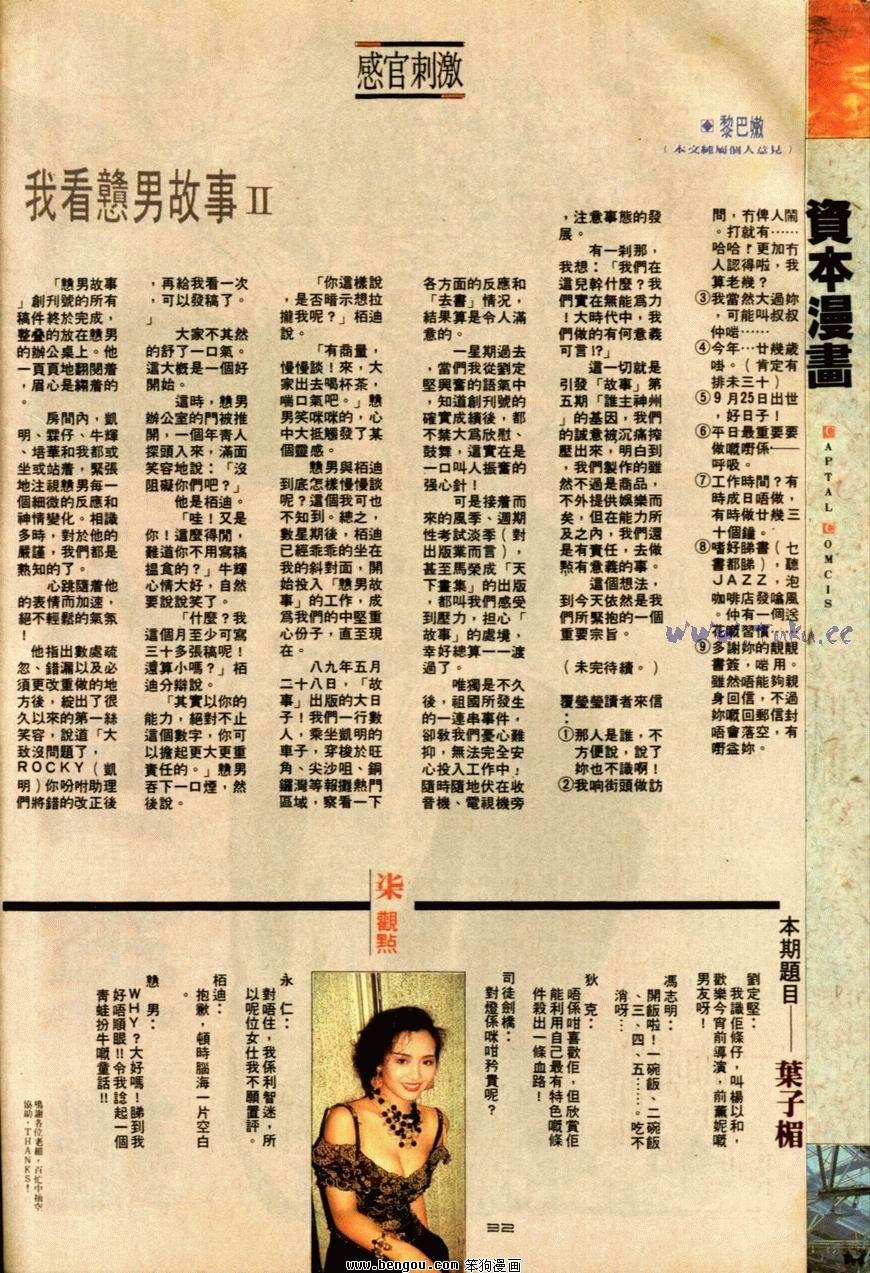 感官刺激
黎巴嫩
(本文純屬個人意見)
我看戇男故事II
「戇男故事
」創刊號的所有
稿件終於完成,
整疊的放在戇男
的辦公桌上。他
一頁頁地翻閱着
,眉心是縐着的
。
房間內,凱
明、霖仔、牛輝
、培華和我都或
坐或站着,緊張
地注視戇男每一
個細微的反應和
神情變化。相識
多時,對於他的
嚴謹,我們都是
熟知的了。
心跳隨着他
的表情而加速,
絕不輕鬆的氣氛
!
他指出數處疏
忽、錯漏以及必
須更改重做的地
方後,綻出了很
久以來的第一絲
笑容,說道「大
致沒問題了,
ROCKY(凱
明)你吩咐助理
們將錯的改正後
,再給我看一次
,可以發稿了。
」
大家不其然
的舒了一口氣。
這大概是一個好
開始。
這時,戇男
辦公室的門被推
開,一個年青人
探頭入來,滿面
笑容地說:「沒
阻礙你們吧?」
他是栢迪。
「哇!又是
你!這麼得閒,
難道你不用寫稿
搵食的?」牛輝
心情大好,自然
要說說笑了。
「什麼?我
這個月至少可寫
三十多張稿呢!
還算小嗎?」栢
迪分辯說。
「其實以你的
能力,絕對不止
這個數字,你可
以擔起更大更重
責任的。」戇男
吞下一口煙,然
後說。
「你這樣說
,是否暗示想拉
攏我呢?」栢迪
說。
「有商量,
慢慢談!來,大
家出去喝杯茶,
喘口氣吧。」戇
男笑咪咪的,心
中大抵觸發了某
個靈感。
戇男與栢迪
到底怎樣慢慢談
呢?這個我可也
不知到。總之,
數星期後,栢迪
已經乖乖的坐在
我的斜對面,開
始投入「戇男故
事」的工作,成
為我們的中堅重
心份子,直至現
在。
八九年五月
二十八日,「故
事」出版的大日
子!我們一行數
人,乘坐凱明的
車子,穿梭於旺
角、尖沙咀、銅
鑼灣等報攤熱門
區域,察看一下
各方面的反應和
「去書」情況,
結果算是令人滿
意的。
一星期過去
,當們我從劉定
堅興奮的語氣中
,知道創刊號的
確實成績後,都
不禁大為欣慰、
鼓舞,這實在是
一口叫人振奮的
强心針!
可是接着而
來的風季、週期
性考試淡季(對
出版業而言),
甚至馬榮成「天
下畫集」的出版
,都叫我們感受
到壓力,担心「
故事」的處境,
幸好總算一一渡
過了。
唯獨是不久
後,祖國所發生
的一連串事件,
卻敎我們憂心難
抑,無法完全安
心投入工作中!
隨時隨地伏在收
音機、電視機旁
,注意事態的發
展。
有一刹那,
我想:「我們在
這兒幹什麼?我
們實在無能為力
!大時代中,我
們做的有何意義
可言!?」
這一切就是
引發「故事」第
五期「誰主神州
」的基因,我們
的誠意被沉痛搾
壓出來,明白到
,我們製作的雖
然不過是商品,
不外提供娛樂而
矣,但在能力所
及之內,我們還
是有責任,去做
點有意義的事。
這個想法,
到今天依然是我
們所緊抱的一個
重要宗旨。
(未完待續。)
覆瑩瑩讀者來信
:
①那人是誰,不
方便說,說了
妳也不識啊!
②我响街頭做訪
問,冇俾人鬧
。打就有……
哈哈!更加冇
人認得啦,我
算老幾?
③我當然大過妳
,可能叫叔叔
仲啱……
④今年…廿幾歲
啩。(肯定有
排未三十)
⑤9月25日出世
,好日子!
⑥平日最重要要
做嘅嘢係——
呼吸。
⑦工作時間?有
時成日唔做,
有時做廿幾三
十個鐘。
⑧嗜好睇書(乜
書都睇),聽
JAZZ,泡
咖啡店發噏風
。仲有一個送
花嘅習慣。
⑨多謝妳的靚靚
書簽,啱用。
雖然唔能夠親
身回信,不過
妳嘅回郵信封
唔會落空,有
嘢益妳。
資本漫畫
CAPTAL COMCIS
柒觀點
本期題目——葉子楣
劉定堅:
我識佢條仔,叫楊以和,
歡樂今宵前導演,前薰妮嘅
男友呀!
馮志明:
開飯啦!一碗飯、二碗飯
、三、四、五……。吃不
消呀…
狄克:
唔係咁喜歡佢,但欣賞佢
能利用自己最有特色嘅條
件殺出一條血路!
司徒劍橋:
對燈係咪咁矜貴呢?
永仁:
對唔住,我係利智迷,所
以呢位女仕我不願置評。
栢迪:
抱歉,頓時腦海一片空白
。
戇男:
WHY?大好嗎!睇到我
好唔順眼!!令我諗起一個
青蛙扮牛嘅童話!!
鳴謝各位老細,百忙中抽空
協助,THANKS!
32
www.bengou.com 笨狗漫画